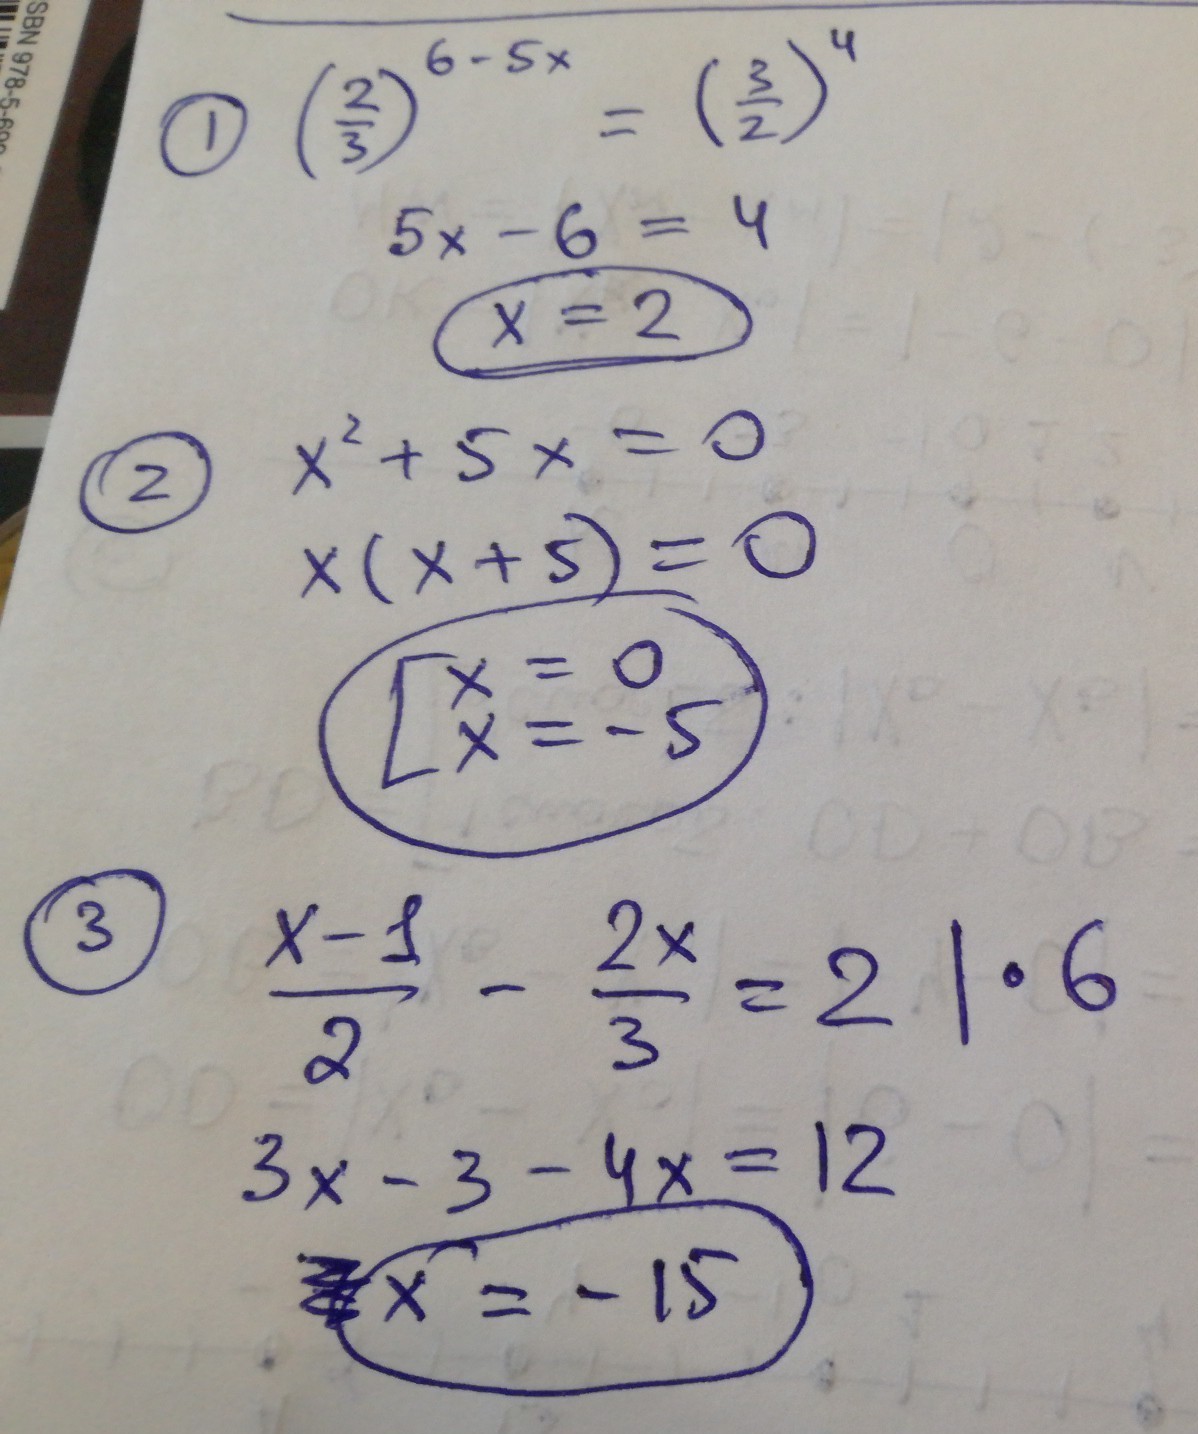 SBN 978-5-699
① (2/3)^(6-5x) = (3/2)^4
5x - 6 = 4
x = 2
② x² + 5x = 0
x(x + 5) = 0
[x = 0
x = -5
③ (x-1)/2 - 2x/3 = 2 | · 6
3x - 3 - 4x = 12
x = -15